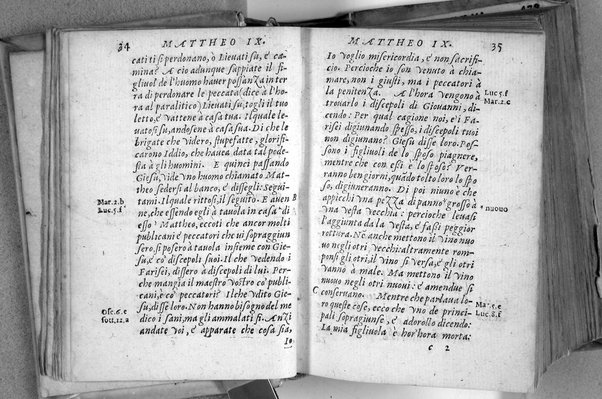 34 MATTHEO IX.
cati ti si perdonano, ò Lieuati su, e ca
mina? A cio adunque sappiate il fi
gliuol de l'huomo hauer possanza in ter
ra di perdonare le peccata (dice à l'ho
ra al paralitico) Lieuati su, togli il tuo
letto, e vattene à casa tua. Il quale le
uatosi su, andosene à casa sua. Di che le
brigate che videro, stupefatte, glorifi
corono Iddio, che haueua data tal pode
stà à gli huomini. E quinci passando
Giesu, vide vno huomo chiamato Mat
theo sedersi al banco, e dissegli: Segui
tami. Il quale rittosi, il seguito. E auen B
Mar. 2. b ne, che essendo egli à tauola in casa di
Luc. 5. f esso Mattheo, eccoti che ancor molti
publicani e peccatori che ui sopraggiun
sero, si posero à tauola insieme con Gie
su, e cò discepoli suoi. Il che vedendo i
Farisei, dissero à discepoli di lui. Per
che mangia il maestro vostro cò publi
cani, e cò peccatori? Il che vdito Gie
Ose. 6. c su, disse loro. Non hanno bisogno del me
sott. 12. a dico i sani, ma gli ammalati si. Anzi
andate voi, e apparate che cosa sia,
Io
MATTHEO IX. 35
Io voglio misericordia, e non sacrifi
cio. Percioche io son venuto à chia
mare, non i giusti, ma i peccatori à
la penitenza. A l'hora vengono à Luc. 5. f
trouarlo i discepoli di Giouanni, di- Mar. 2. c
cendo: Per qual cagione noi, e i Fa
risei digiunando spesso, i discepoli tuoi
non digiunano? Giesu disse loro. Pos
sono i figliuoli de lo sposo piagnere,
mentre che con essi è lo sposo? Ver
ranno ben giorni, quado tolto loro lo spo
so, digiuneranno. Di poi niuno è che
appicchi vna pezza di panno grosso à nuouo
vna vesta vecchia: percioche leuasi
l'aggiunta da la vesta, e fassi peggior
rottura. Ne anche mettono il vino nuo
uo negli otri vecchi: altramente rom
ponsi gli otri, il vino si versa, e gli otri
vanno à male. Ma mettono il vino
nuouo negli otri nuoui: e amendue si
C conseruano. Mentre che parlaua lo-
ro queste cose, ecco che vno de princi- Mar. 5. c
pali sopragiunse, e adorollo dicendo: Luc. 8. f
La mia figliuola è hor'hora morta:
C 2